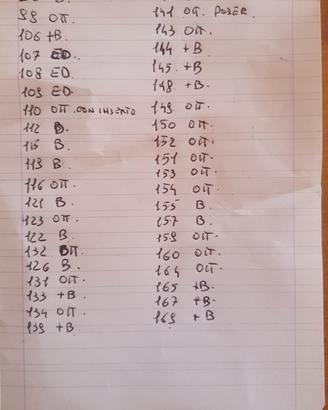 99 OTT.
106 +B.
107 ED.
108 ED.
109 ED.
110 OTT. CON INSERTO
112 B.
115 B.
113 B.
116 OTT.
121 B.
123 OTT.
122 B.
132 OTT.
126 B.
131 OTT.
133 +B.
134 OTT.
139 +B.
141 OTT. POSER.
143 OTT.
144 +B
145 +B
148 +B.
149 OTT.
150 OTT.
152 OTT.
151 OTT.
153 OTT.
154 OTT.
155 B.
157 B.
159 OTT.
160 OTT.
164 OTT.
165 +B.
167 +B.
169 +B